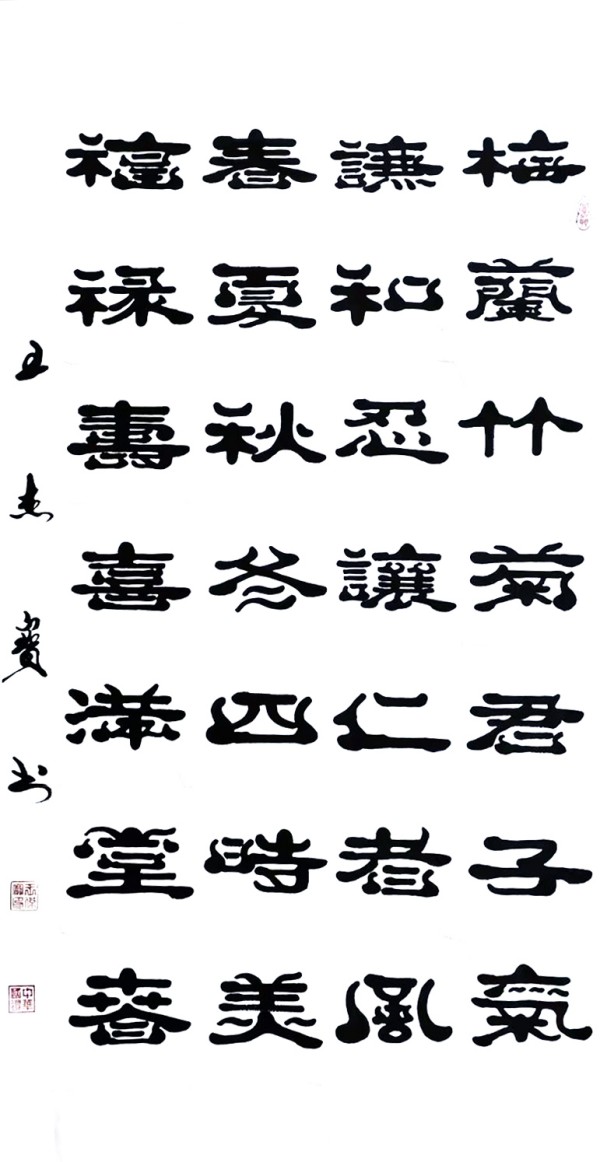 梅蘭竹菊君子氣
謙和忍讓仁者風
春夏秋冬四時美
福禄壽喜滿堂春
王杰书